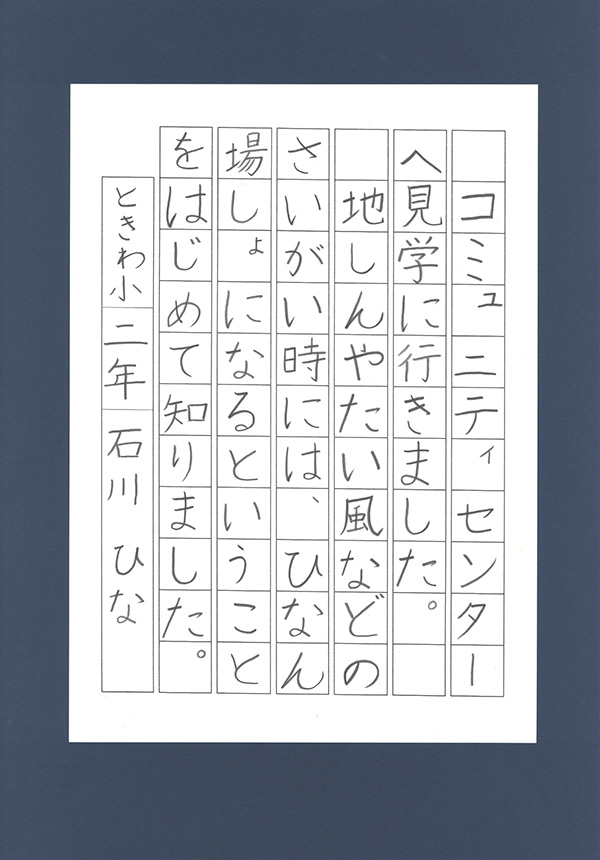 コミュニティセンター
へ見学に行きました。
　地しんやたい風などの
さいがい時には、ひなん
場しょになるということ
をはじめて知りました。
ときわ小 二年 石川 ひな